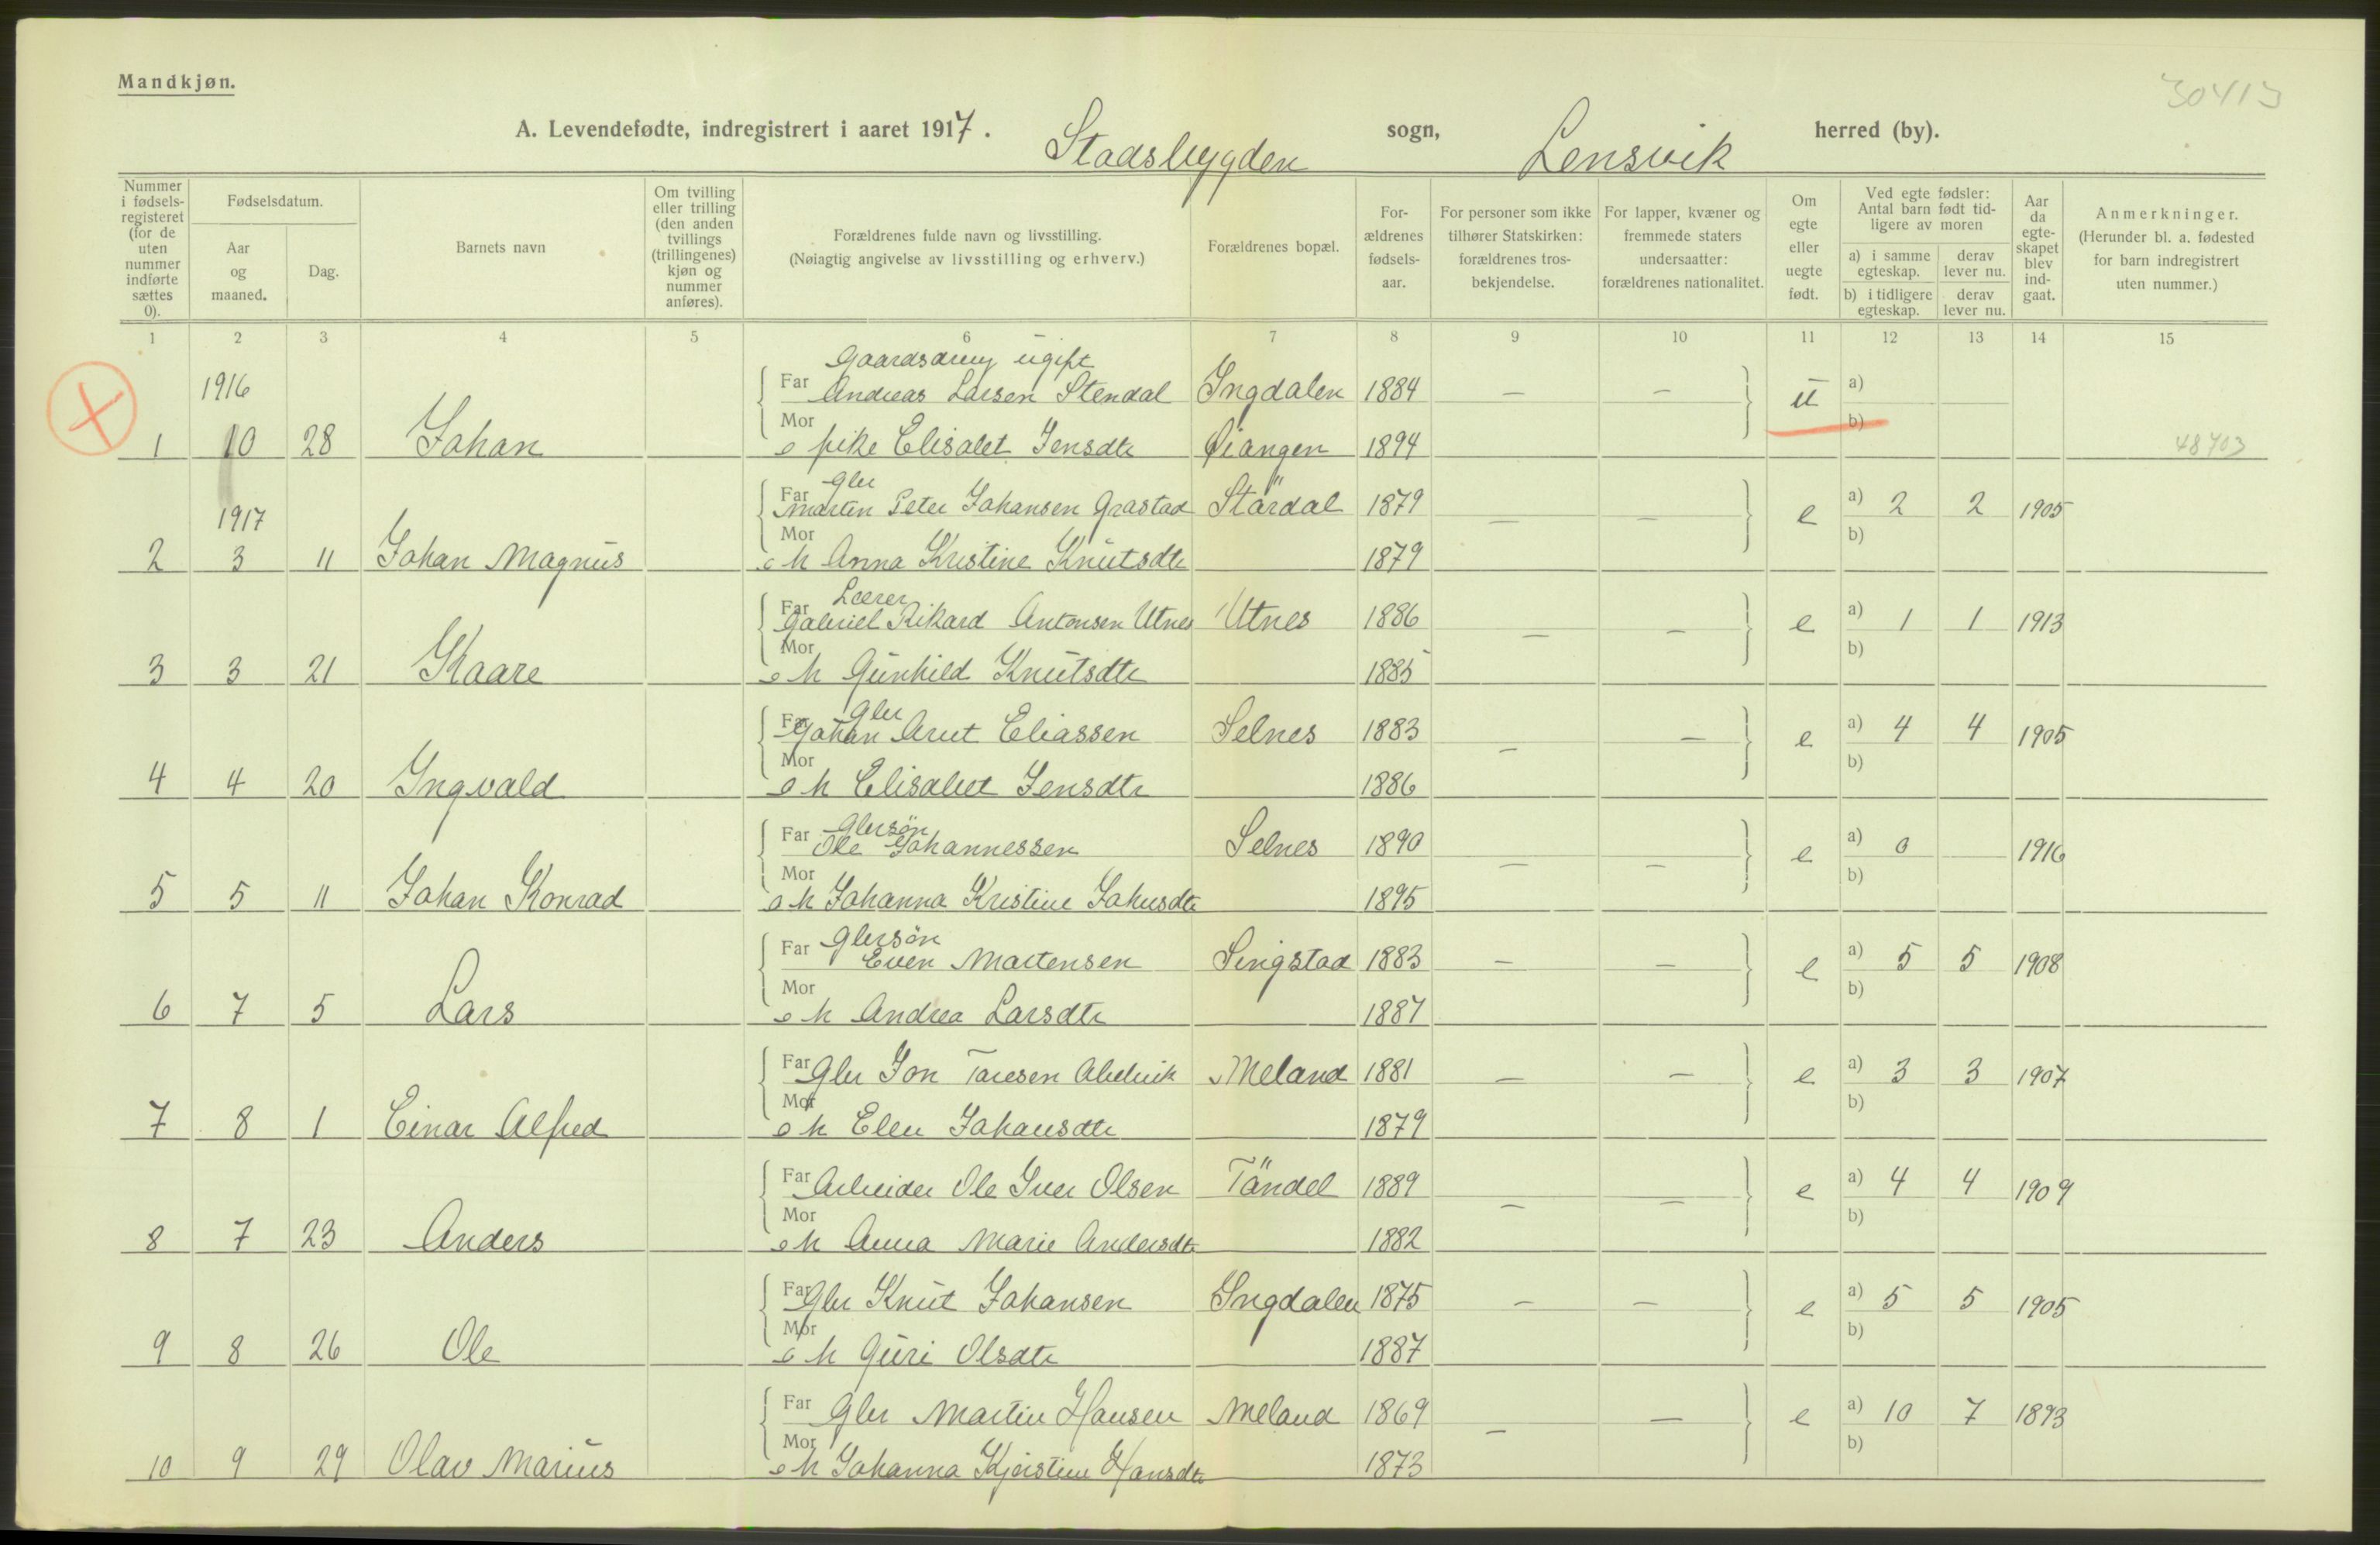 Mandkjøn.
30413
A. Levendefødte, indregistrert i aaret 1917. Stadsbygden sogn, Lensvik herred (by).
Nummer i fødsels-registeret (for de uten nummer indførte sættes 0).
Fødselsdatum.
Aar og maaned.
Dag.
Barnets navn
Om tvilling eller trilling (den anden tvillings (trillingenes) kjøn og nummer anføres).
Forældrenes fulde navn og livsstilling.
(Nøiagtig angivelse av livsstilling og erhverv.)
Forældrenes bopæl.
For-ældrenes fødsels-aar.
For personer som ikke tilhører Statskirken: forældrenes tros-bekjendelse.
For lapper, kvæner og fremmede staters undersaatter: forældrenes nationalitet.
Om egte eller uegte født.
Ved egte fødsler: Antal barn født tid-ligere av moren
a) i samme egteskap.
derav lever nu.
b) i tidligere egteskap.
derav lever nu.
Aar da egte-skapet blev ind-gaat.
Anmerkninger.
(Herunder bl. a. fødested for barn indregistrert uten nummer.)
1 2 3 4 5 6 7 8 9 10 11 12 13 14 15
Gaardsdreng ugift
1916 Far Andreas Larsen Stendal Ingdalen 1884 — — u a)
1 10 28 Johan Mor pike Elisabet Jensdtr Øiangen 1894 b) 48703
Gbr
1917 Far Martin Peter Johansen Grastad Stärdal 1879 — — e a) 2 2 1905
2 3 11 Johan Magnus Mor h Anna Kristine Knutsdtr 1879 b)
Lærer
Far Gabriel Rikard Antonsen Utnes Utnes 1886 — — e a) 1 1 1913
3 3 21 Kaare Mor h Gunhild Knutsdtr 1885 b)
Gbr
Far Johan Arnt Eliassen Selnes 1883 — — e a) 4 4 1905
4 4 20 Ingvald Mor h Elisabet Jensdtr 1886 b)
Gbrsøn
Far Ole Johannessen Selnes 1890 — — e a) 0 1916
5 5 11 Johan Konrad Mor h Johanna Kristine Johnsdtr 1895 b)
Gbrsøn
Far Even Martensen Singstad 1883 — — e a) 5 5 1908
6 7 5 Lars Mor h Andrea Larsdtr 1887 b)
Far Gbr Jon Taresen Meland 1881 — — e a) 3 3 1907
7 8 1 Einar Alfred Mor h Elen Johansdtr 1879 b)
Far Arbeider Ole Iver Olsen Tändel 1889 — — e a) 4 4 1909
8 7 23 Anders Mor h Anna Marie Andersdtr 1882 b)
Far Gbr Knut Johansen Ingdalen 1875 — — e a) 5 5 1905
9 8 26 Ole Mor h Guri Olsdtr 1887 b)
Far Gbr Martin Hansen Meland 1869 — — e a) 10 7 1893
10 9 29 Olav Marius Mor h Johanna Kjerstine Hansdtr 1873 b)